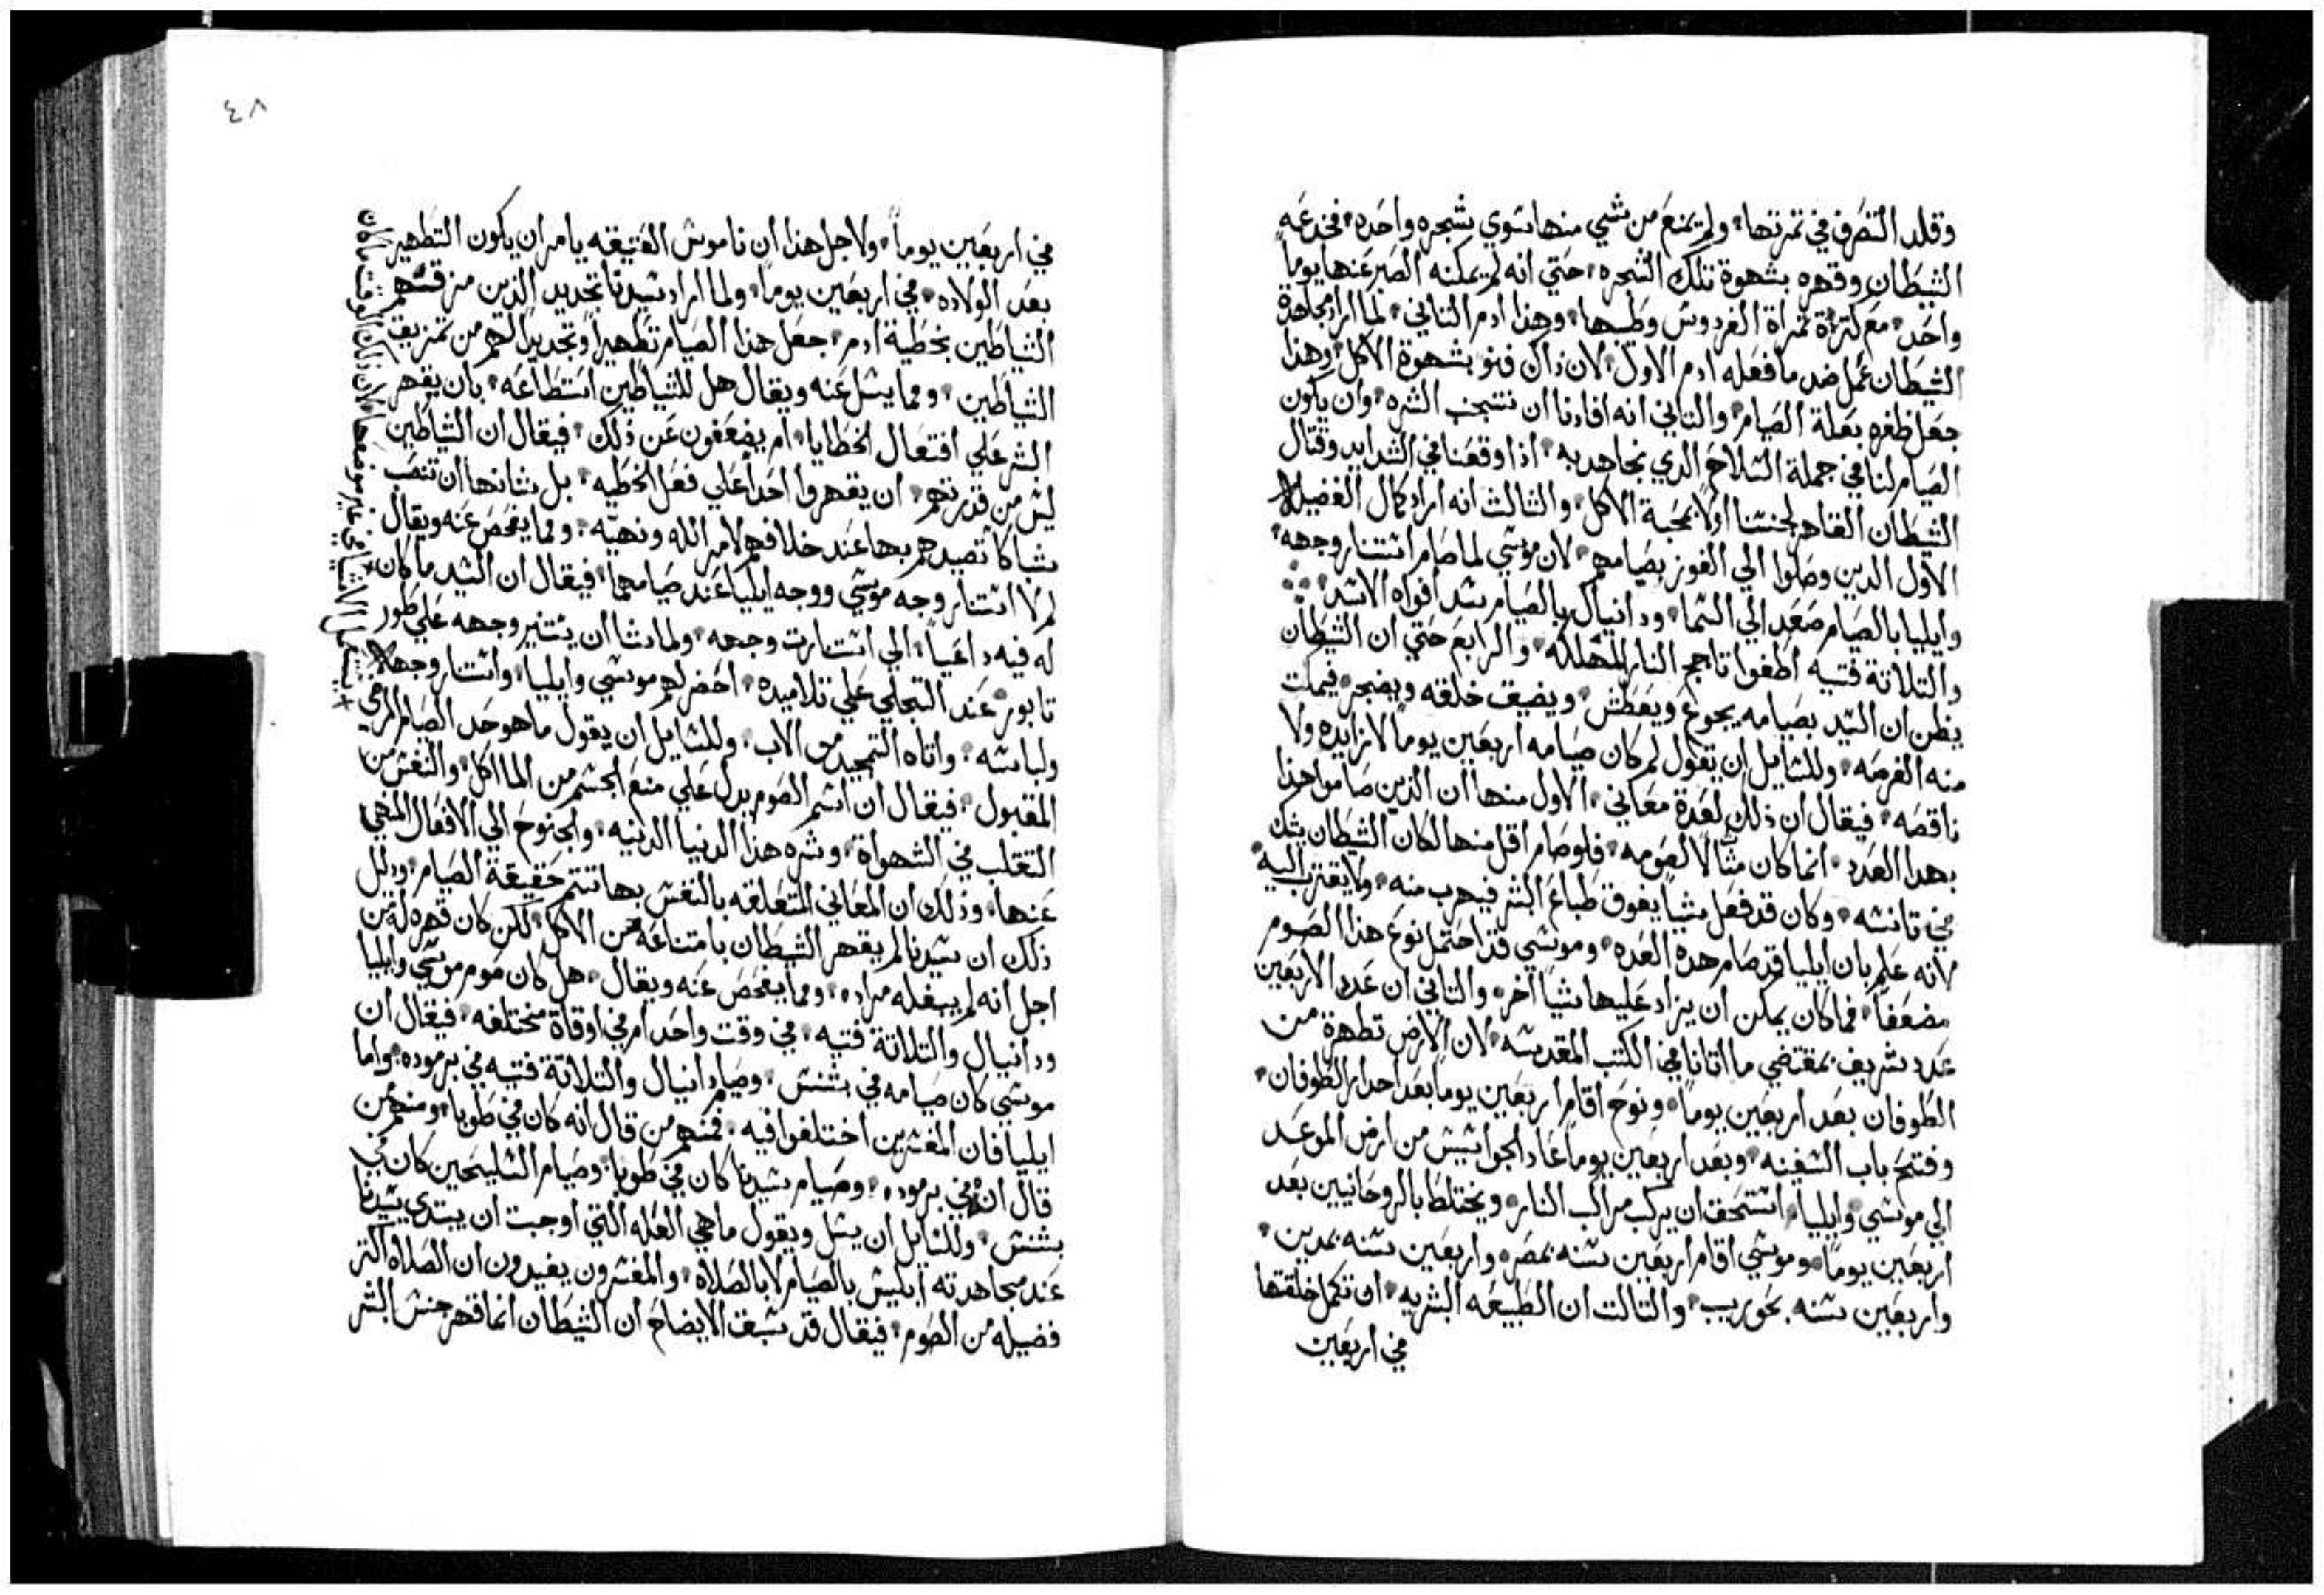 وقلد التصرف في تمرتها، ولم يمنع من شي منها سوي شجره واحده، فخدعه
الشيطان وقهره بشهوة تلك الشجره، حتي انه لم يمكنه الصبر عنها يوما
واحد، مع كترة تمراة الفردوس وطيبها، وهذا ادم التاني، لما اراد مجاهدة
الشيطان عمل ضد ما فعله ادم الاول، لان ذاك فنو بشهوة الاكل، وهذا
جعل ظفره بعلة الصيام، والتاني انه افادنا ان نتجنب الشره، وان يكون
الصيام لنا في جملة السلاح الدي نجاهد به، اذا وقعنا في الشدايد وقتال
الشيطان القاهر لجنسنا اولا بمحبة الاكل، والتالت انه اراد كمال الفضيلا
الاول الدين وصلوا الي الفوز بصيامهم، لان موسي لما صام استنار وجهه،
وايليا بالصيام صعد الي السما، ودانيال بالصيام سد افواه الاسد،
والتلاتة فتيه اطفوا تاجج النار المهلكه، والرابع حتي ان الشيطان
يظن ان السيد بصيامه يجوع ويعطش، ويضيق خلقه ويضجر، فيمكت
منه الفرصه، وللسايل ان يقول لم كان صيامه اربعين يوما لا زايده ولا
ناقصه، فيقال ان ذلك لعدة معاني، الاول منها ان الذين صاموا هذا
بهدا العدد، انما كان مثالا لصومه، فلو صام اقل منها لكان الشيطان يشك
في تانسه، وكان قد فعل شيا يفوق طباع البشر فيهرب منه، ولا يقترب اليه
لانه علم بان ايليا قد صام هده العده، وموسي قد احتمل نوع هذا الصوم
مضعفا، فما كان يمكن ان يزاد عليها شيا اخر، والتاني ان عدد الاربعين
عدد شريف بمقتضي ما اتانا في الكتب المقدسه، لان الارض تطهرة من
الطوفان بعد اربعين يوما، ونوح اقام اربعين يوما بعد احدار الطوفان،
وفتح باب السفينه، وبعد اربعين يوما عاد الجواسيس من ارض الموعد
الي موسي، وايليا، استحق ان يركب مراكب النار، ويختلط بالروحانيين بعد
اربعين يوما، وموسي اقام اربعين سنه بمصر، واربعين سنه بمدين،
واربعين سنه بحوريب، والتالت ان الطبيعه البشريه، ان تكمل خلقتها
في اربعين
٤٨
في اربعين يوما، ولاجل هذا ان ناموس العتيقه يامر ان يكون التطهير
بعد الولاده، في اربعين يوما، ولما اراد سيدنا تجديد الذين مزقتهم
الشياطين بخطية ادم، جعل هذا الصيام تطهيرا وتجديدا لهم من تمزيق
الشياطين، ومما يسل عنه ويقال هل للشياطين استطاعه، بان يقهر
البشر علي افتعال الخطايا، ام يضعفون عن ذلك، فيقال ان الشياطين
ليس من قدرتهم، ان يقهروا احدا علي فعل الخطيه، بل شانها ان تنصب
شباكا تصيدهم بها عند خلافهم لامر الله ونهيه، ومما يفحص عنه ويقال
لم لا استنار وجه موسي ووجه ايليا عند صيامهما، فيقال ان السيد ما كان
له فيه داعيا، الي استنارت وجهه، ولما شا ان يستنير وجهه علي طور
تابور، عند التجلي علي تلاميده، احضر لهم موسي وايليا، واستنار وجهه
ولباسه، واتاه التمجيد من الاب، وللسايل ان يقول ما هو حد الصيام المرضي
المقبول، فيقال ان اسم الصوم يدل علي منع الجسم من الماكل، والنفس من
التقلب في الشهواة، وشره هذا الدنيا الدنيه، والجنوح الي الافعال المنهي
عنها، وذلك ان المعاني المتعلقه بالنفس بها تتم حقيقة الصيام، ودليل
ذلك ان سيدنا لم يقهر الشيطان بامتناعه عن الاكل، لكن كان قهره له من
اجل انه لم يبغله مراده، ومما يفحص عنه ويقال، هل كان صوم موسي وايليا
ودانيال والتلاتة فتيه، في وقت واحد ام في اوقاة مختلفه، فيقال ان
موسي كان صيامه في بشنس، وصيام دانيال والتلاتة فتيه في برموده، واما
ايليا فان المفسرين اختلفوا فيه، فمنهم من قال انه كان في طوبا، ومنهم من
قال انه في برموده، وصيام سيدنا كان في طوبا، وصيام السليحين كان في
بشنس، وللسايل ان يسل ويقول ما هي العله التي اوجبت ان يبتدي سيدنا
عند مجاهدته ابليس بالصيام لا بالصلاه، والمفسرون يفيدون ان الصلاه اكتر
فضيله من الصوم، فيقال قد سبق الايضاح ان الشيطان انما قهر جنس البشر
يستعمل الاشيا في غير موضعها لان ذلك الوقت ما كان